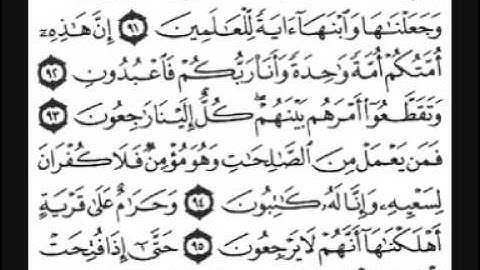 وَجَعَلْنَٰهَا وَٱبْنَهَآ ءَايَةً لِّلْعَٰلَمِينَ ٩١ إِنَّ هَٰذِهِۦٓ
أُمَّتُكُمْ أُمَّةً وَٰحِدَةً وَأَنَا۠ رَبُّكُمْ فَٱعْبُدُونِ ٩٢
وَتَقَطَّعُوٓا۟ أَمْرَهُم بَيْنَهُمْ ۖ كُلٌّ إِلَيْنَا رَٰجِعُونَ ٩٣
فَمَن يَعْمَلْ مِنَ ٱلصَّٰلِحَٰتِ وَهُوَ مُؤْمِنٌ فَلَا كُفْرَانَ
لِسَعْيِهِۦ وَإِنَّا لَهُۥ كَٰتِبُونَ ٩٤ وَحَرَٰمٌ عَلَىٰ قَرْيَةٍ
أَهْلَكْنَٰهَآ أَنَّهُمْ لَا يَرْجِعُونَ ٩٥ حَتَّىٰٓ إِذَا فُتِحَتْ